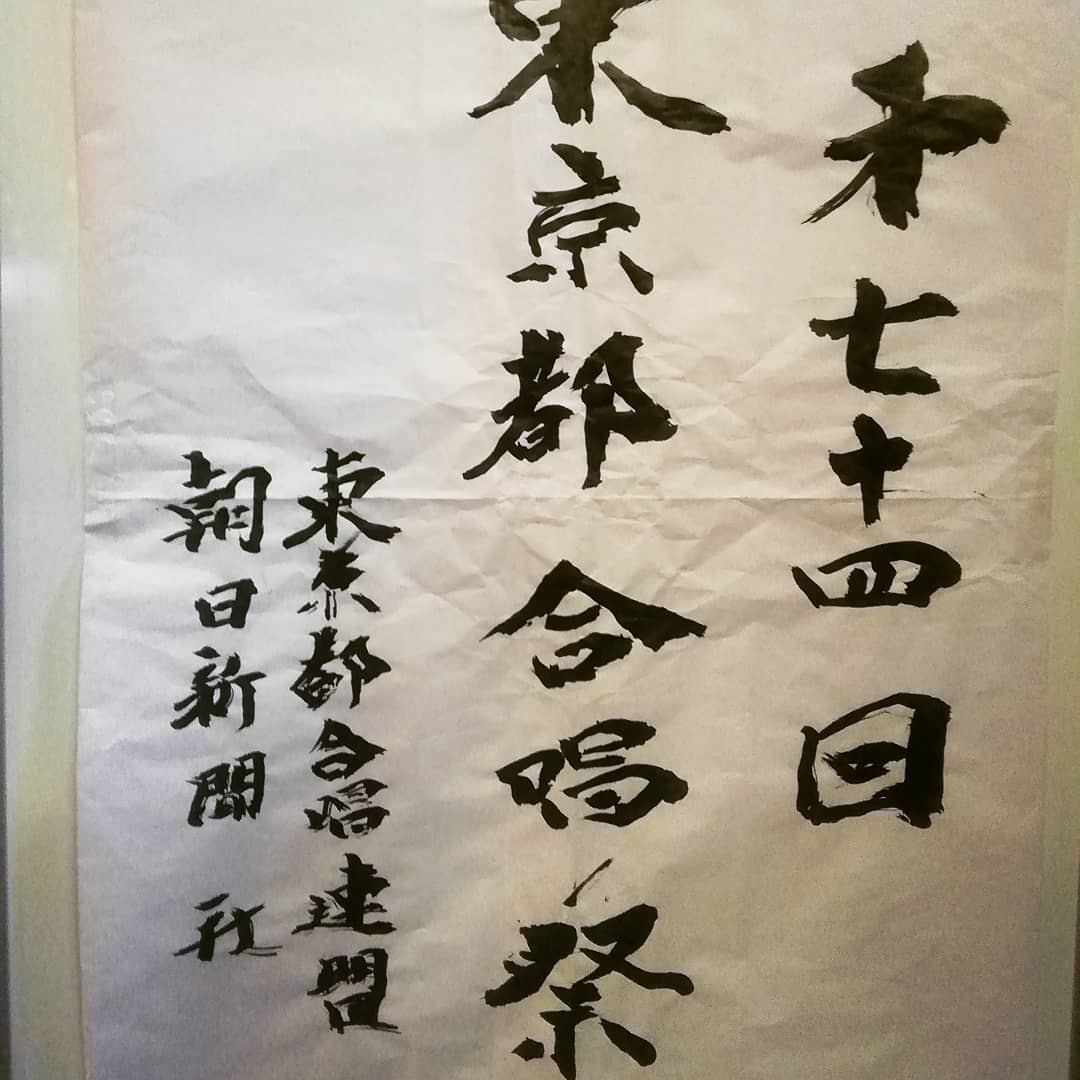 才七十四回
東京都合唱祭
東京都合唱連盟
朝日新聞社